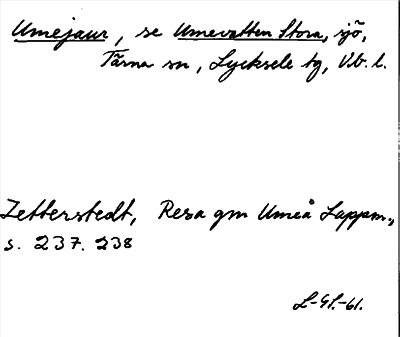 Umejaur, se Umevatten Stora, sjö,
Tärna sn, Lycksele tg, Vb. l.
Zetterstedt, Resa gm Umeå Lappm.,
s. 237. 238
L-41.-61.